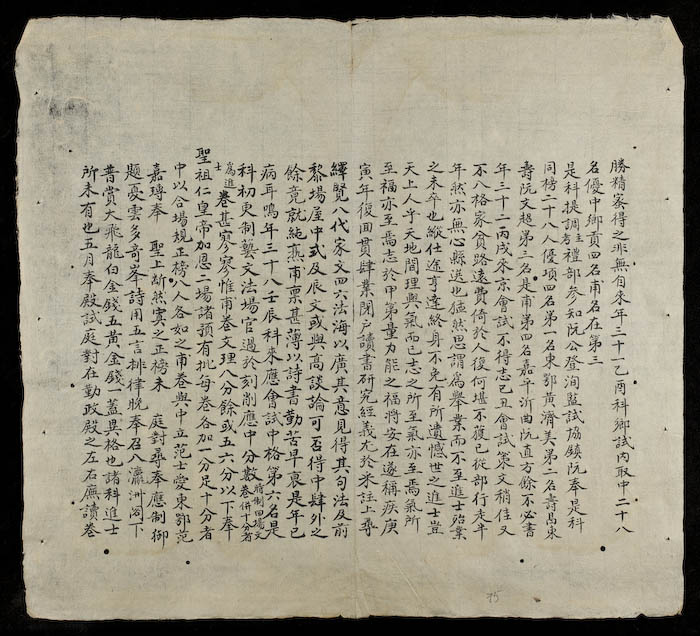 勝精家得之非無自來年三十一乙酉科鄉試內取中二十八
名優中鄉貢四名甫名在第三
是科提調主考禮部參知阮公登洵監試協鎮阮奉是科
同榜二十八人優項四名第一名東鄂黃濟美第二名壽昌東
壽阮文超第三名是甫第四名嘉平沂曲阮直方餘不必書
年三十二丙戌來京會試不得志己丑會試第文稍佳又
不八格家貧路遠費倚於人後何堪不獲已從部行走半
年然亦無心縣選也猛然思謂為舉業而不至進士殆業
之未卒也縱仕途亨達終身不免有所遺憾世之進士豈
天上人乎天地間理與氣而已志之所至氣亦至焉氣所
至福亦至焉志於中第量力能之福將安在遂稱疾庚
寅年復回貫肆業閉戶讀書研究經義尤於朱註上尋
繹覽八代家文四六法海以廣其意見得其句法及前
黎場屋中式及辰文或與高談論可否得中肆外之
餘竟就純熟甫稟甚薄以詩書勤苦早衰是年已
病耳鳴年三十八壬辰科來應會試中格第六名是
科初更制藝文法場官過於刻削應中分數將制四場文卷併十分者
為進士卷甚寥寥惟甫卷文理八分餘或五六分以下奉
聖祖仁皇帝加恩二場諸預有批每卷各加一分足十分者
中以合場規正榜八人各如之甫卷與中立范士愛東鄂范
嘉瑼奉 聖上斷然寘之正榜未 庭對尋奉應制御
題憂雲多奇峯詩用五言排律晚奉召八瀛洲閣下
普賞大飛龍白金錢五黃金錢一蓋異格也諸科進士
所未有也五月奉殿試庭對在勤政殿之左右廡讀卷
75